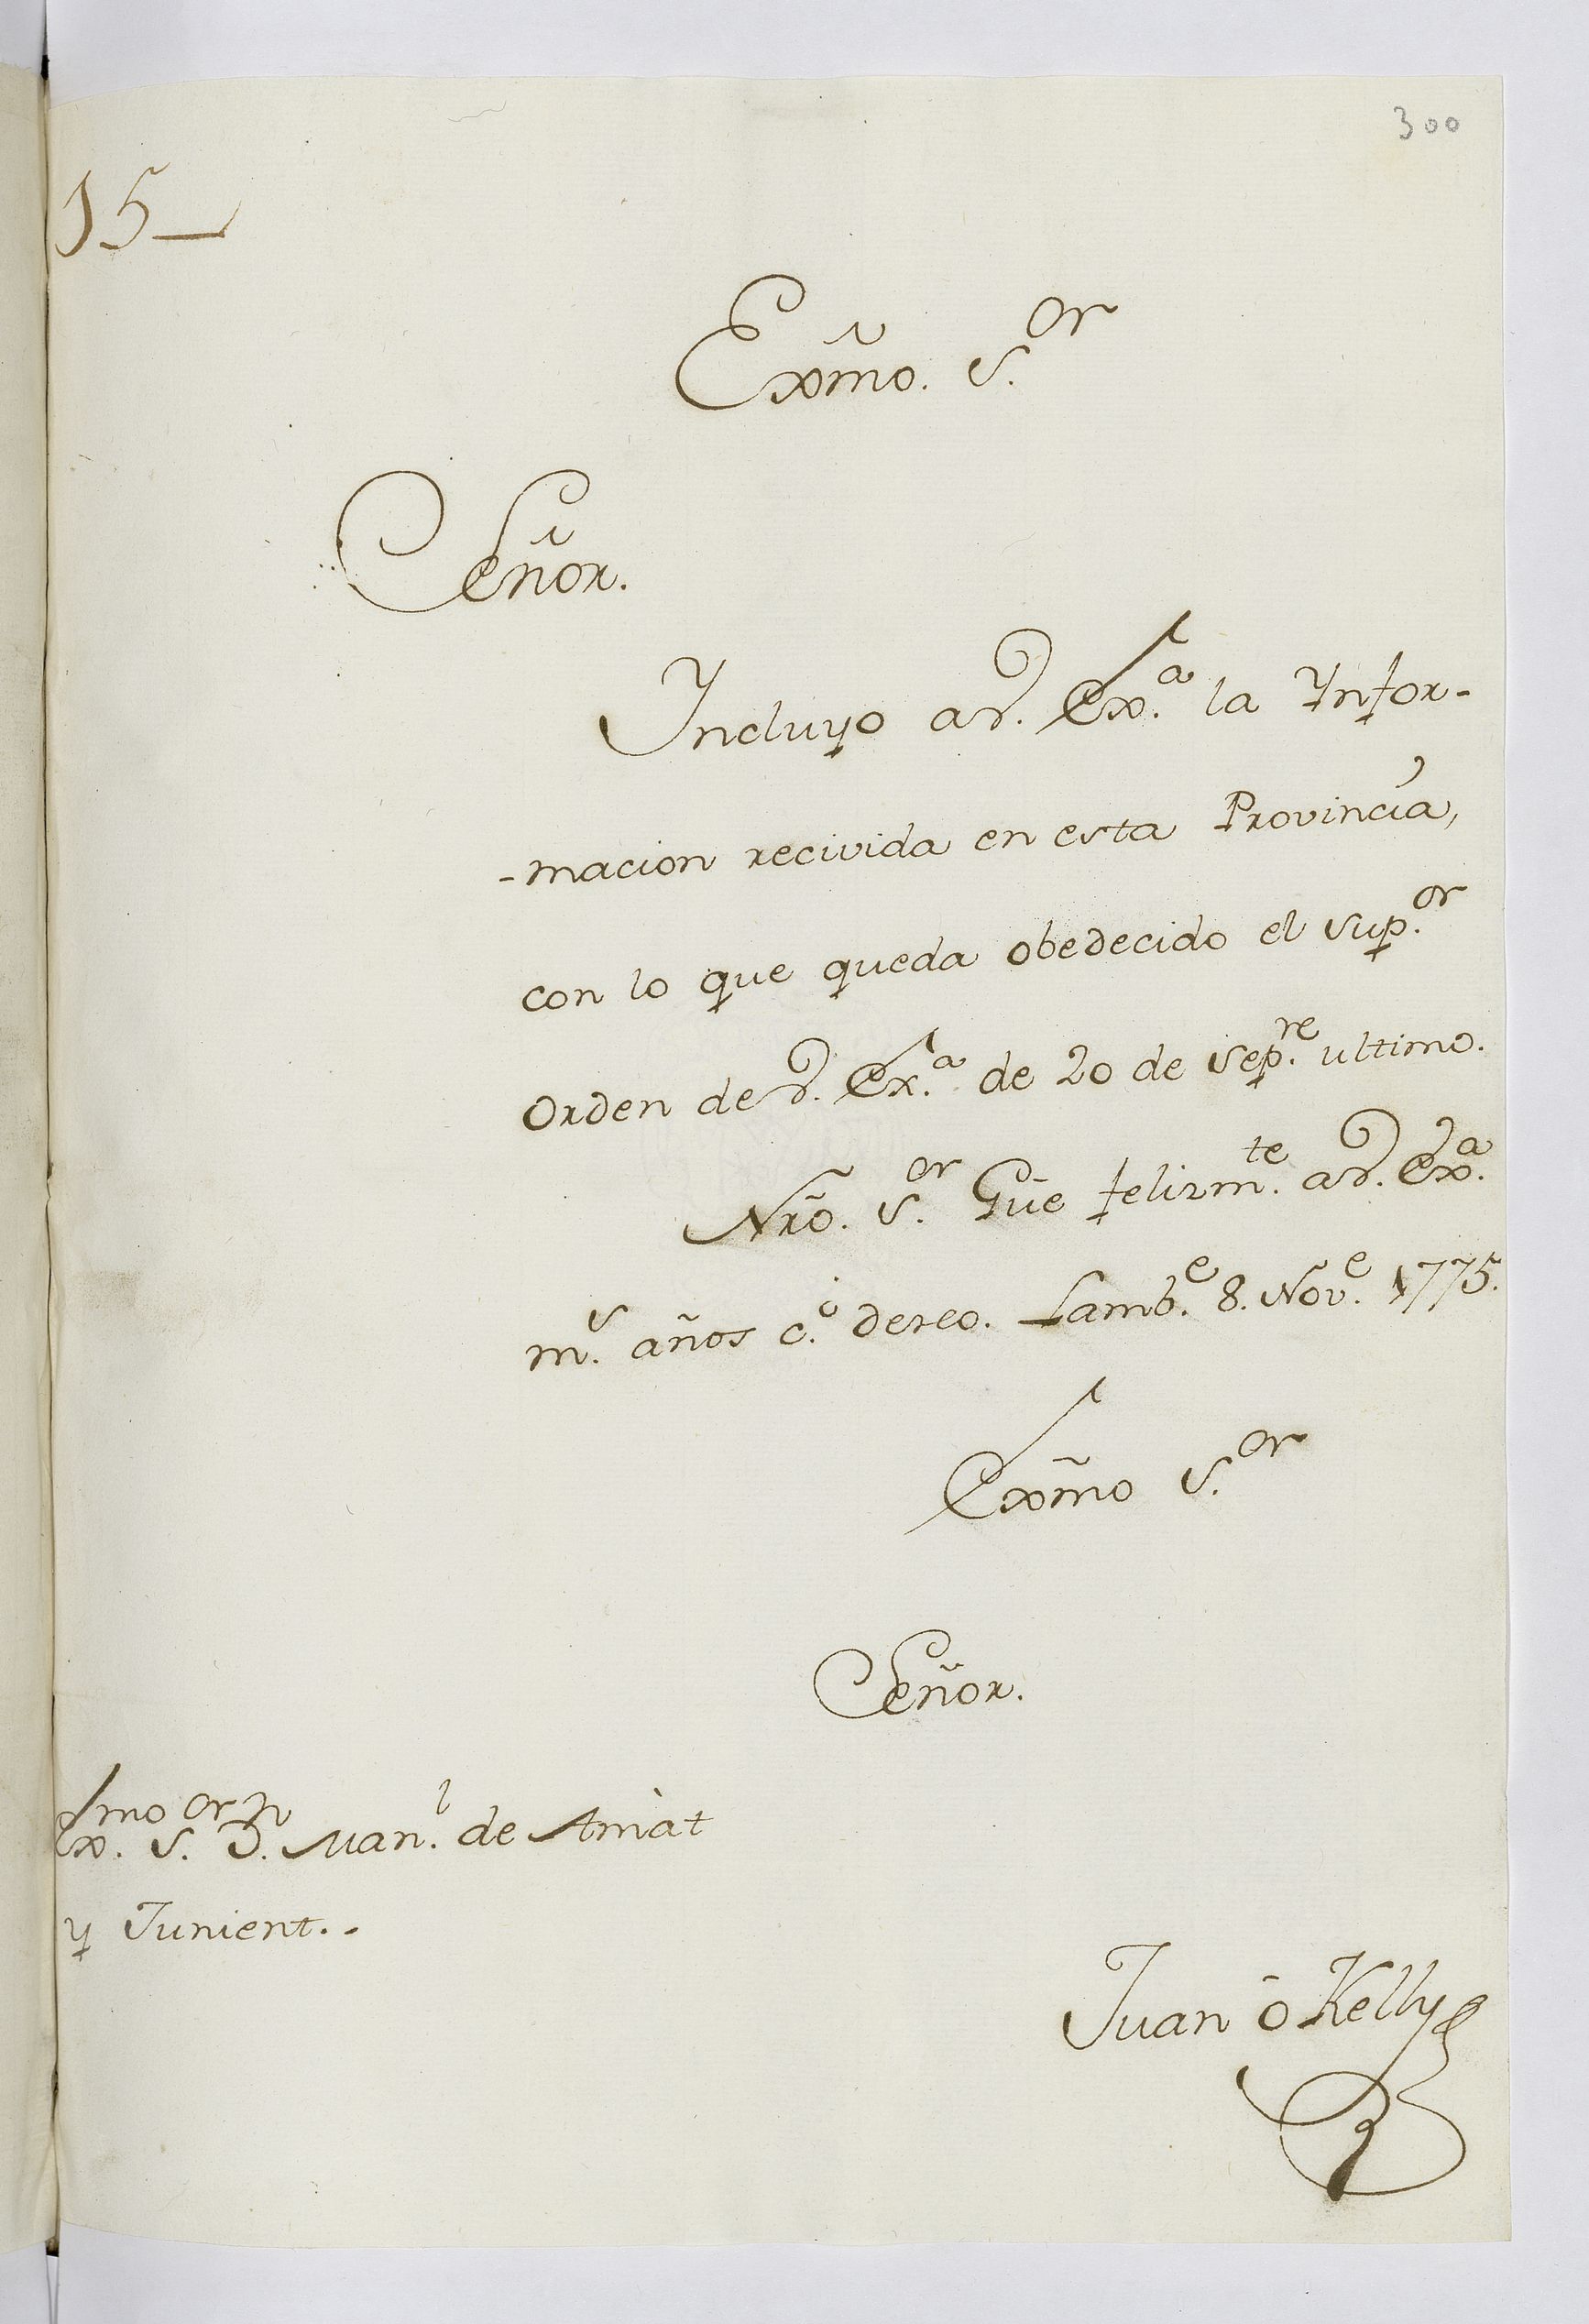 300
15
Exm̃o. S.or
Señor.
Incluyo a V. Ex.a la Ynfor-
-macion recivida en esta Provincia,
con lo que queda obedecido el Sup.or
Orden de V. Ex.a de 20 de Sep.re ultimo.
Nrõ. S.or Gũe felizm.te a V. Ex.a
m.s años c.o deseo. Lamb.e 8. Nov.e 1775.
Exm̃o S.or
Señor.
Ex.mo S.or D.n Man.l de Amat
y Junient.-
Juan ō Kelly